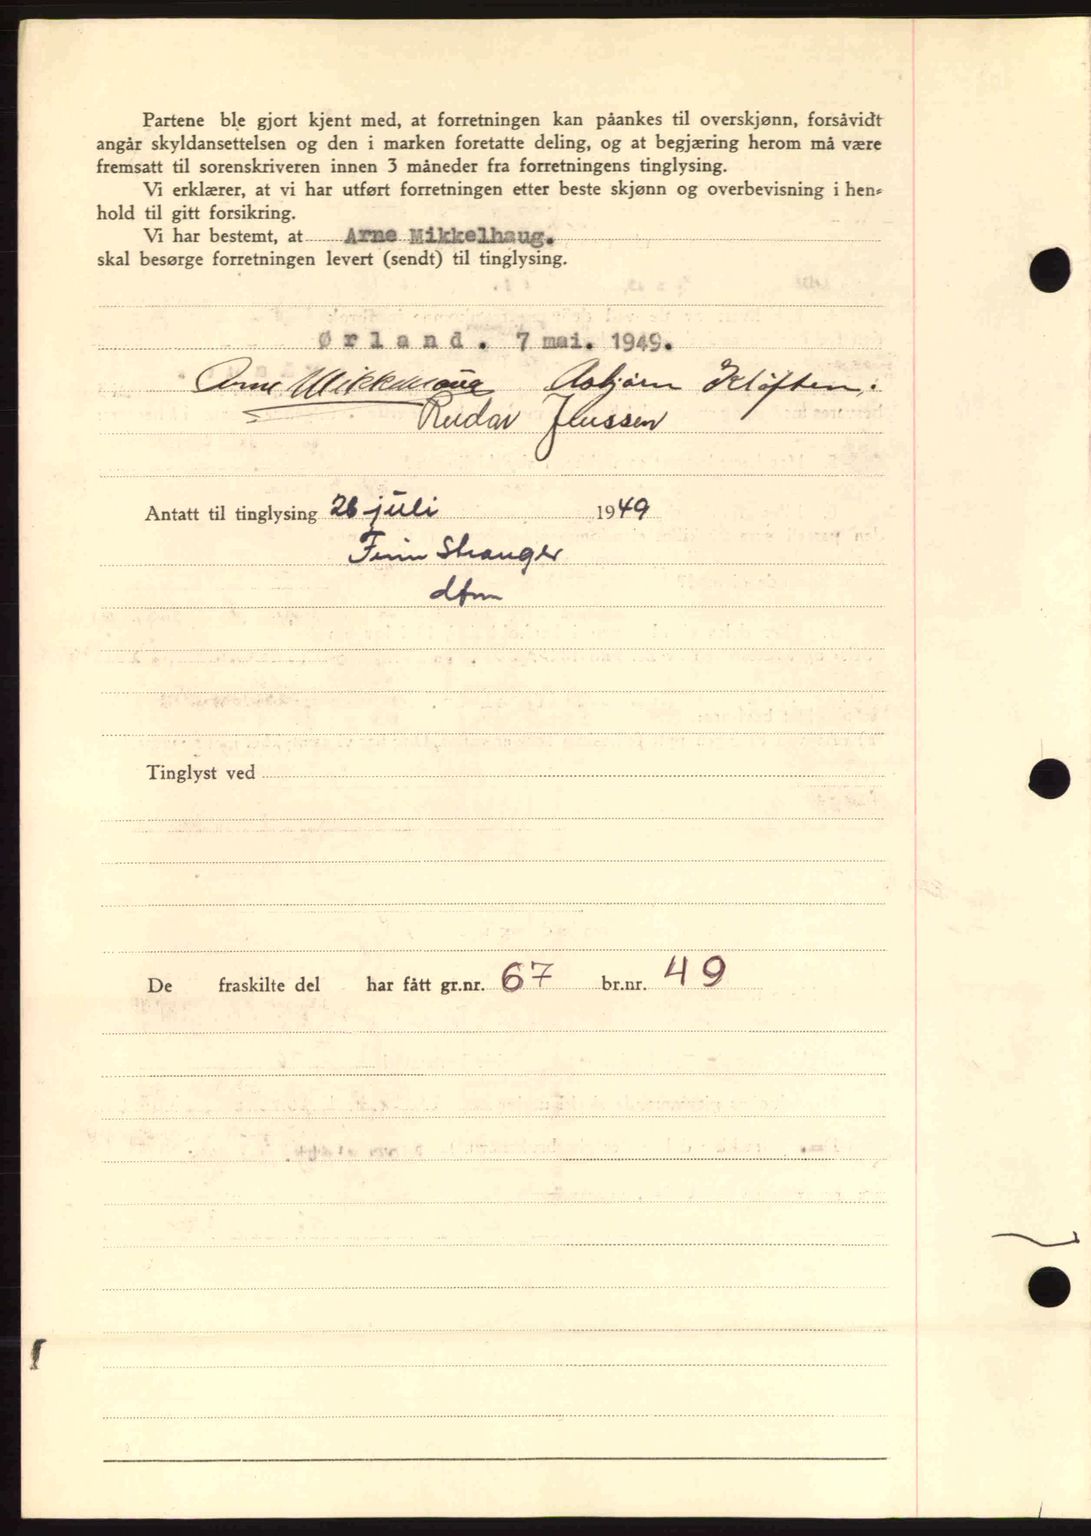 Partene ble gjort kjent med, at forretningen kan påankes til overskjønn, forsåvidt
angår skyldansettelsen og den i marken foretatte deling, og at begjæring herom må være
fremsatt til sorenskriveren innen 3 måneder fra forretningens tinglysing.
Vi erklærer, at vi har utført forretningen etter beste skjønn og overbevisning i hen-
hold til gitt forsikring.
Vi har bestemt, at Arne Mikkelhaug.
skal besørge forretningen levert (sendt) til tinglysing.
Ørland. 7 mai. 1949.
Arne Mikkelhaug Asbjørn Kløften.
Reidar Jenssen
Antatt til tinglysing 26 juli 1949
Finn Stranger
dfm
Tinglyst ved
De fraskilte del har fått gr.nr. 67 br.nr. 49